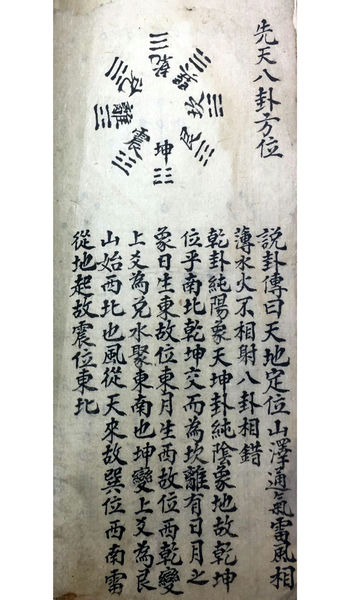 先天八卦方位
乾
巽
坎
艮
坤
震
離
兌
說卦傳曰天地定位山澤通氣雷風相
薄水火不相射八卦相錯
乾卦純陽象天坤卦純陰象地故乾坤
位乎南北乾坤交而為坎離有日月之
象日生東故位東月生西故位西乾變
上爻為兌水聚東南也坤變上爻為艮
山始西北也風從天來故巽位西南雷
從地起故震位東北